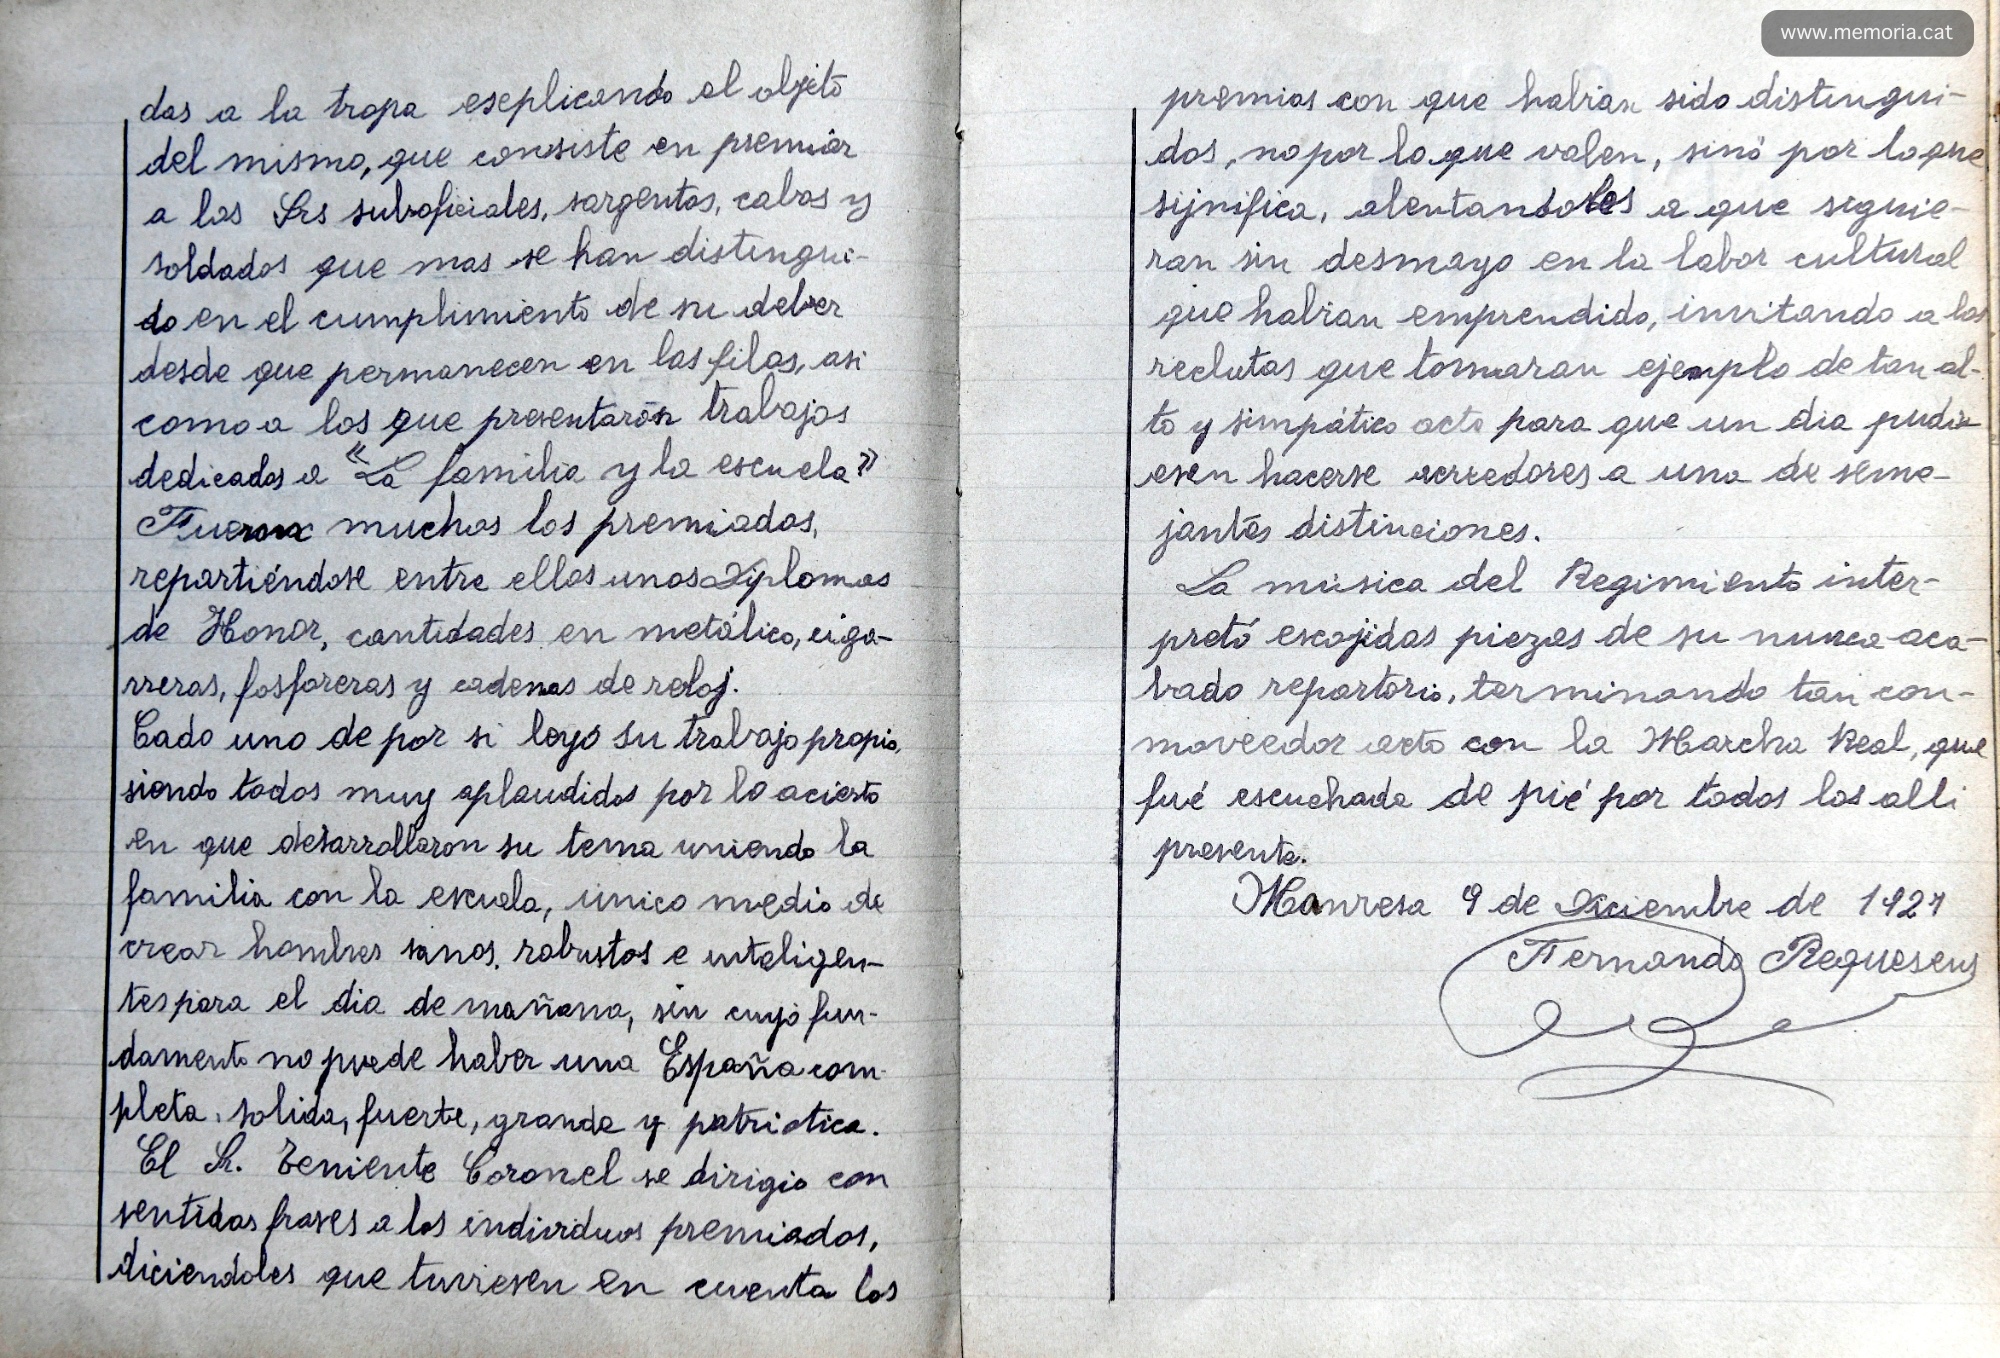 das a la tropa eseplicando el objeto
del mismo, que consiste en premiar
a los Srs suboficiales, sargentos, cabos y
soldados que mas se han distingui-
do en el cumplimiento de su deber
desde que permanecen en las filas, asi
como a los que presentarón trabajos
dedicados a "La familia y la escuela"
Fueron muchos los premiados,
repartiéndose entre ellos unos Diplomas
de Honor, cantidades en metálico, ciga-
rreras, fosforeras y cadenas de reloj.
Cada uno de por si leyó su trabajo propio,
siendo todos muy aplaudidos por lo acierto
en que desarrollaron su tema uniendo la
familia con la escuela, único medio de
crear hombres sanos, robustos e inteligen-
tes para el dia de mañana, sin cuyo fun-
damento no puede haber una España com-
pleta, solida, fuerte, grande y patriotica.
El Sr. Teniente Coronel se dirigio con
sentidas frases a los individuos premiados,
diciendoles que tuviesen en cuenta los
www.memoria.cat
premios con que habian sido distingui-
dos, no por lo que valen, sinó por lo que
significa, alentandoles a que siguie-
ran sin desmayo en la labor cultural
que habian emprendido, invitando a los
reclutas que tomaran ejemplo de tan al-
to y simpático acto para que un dia pudi-
esen hacerse acreedores a una de seme-
jantes distinciones.
La música del Regimiento inter-
pretó escojidas piezas de su nunca aca-
bado repartorio, terminando tan con-
moveedor acto con la Marcha Real, que
fué escuchada de pié por todos los alli
presente.
Manresa 9 de Diciembre de 1927
Fernando Requesens